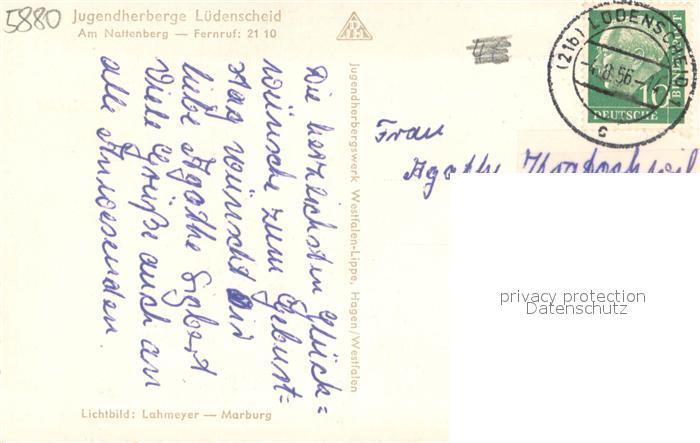 5880
Jugendherberge Lüdenscheid
Am Nattenberg — Fernruf: 21 10
Die herzlichsten Glück=
wünsche zum Geburts=
tag wünscht Dir
liebe Agathe Sigbert
Viele Grüße auch an
alle Anwesenden.
Lichtbild: Lahmeyer — Marburg
Jugendherbergswerk Westfalen-Lippe, Hagen/Westfalen
(21b) LÜDENSCHEID 1
.8.56
c
10
DEUTSCHE
BUNDESPOST
Frau
Agathe
privacy protection
Datenschutz